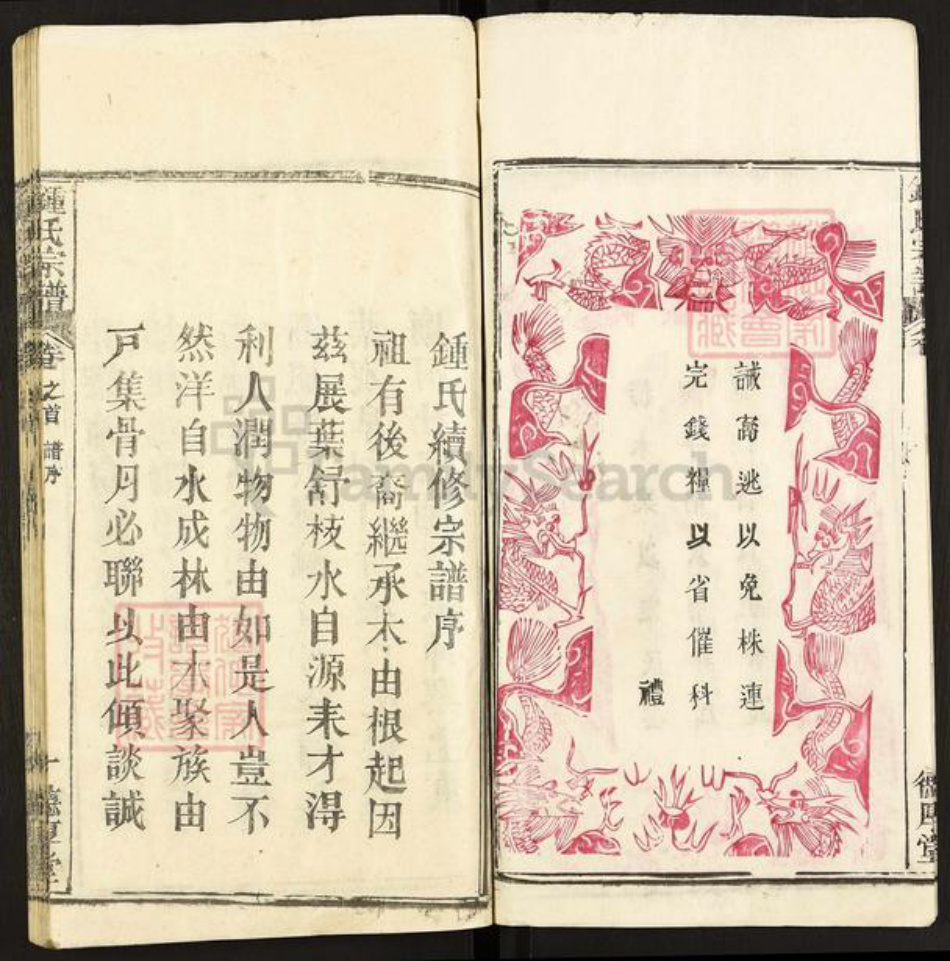 誡窩逃以免株連
完錢糧以省催科
禮
鍾氏續修宗譜序
祖有後裔繼承木由根起因
茲展葉舒枝水自源來才得
利人潤物物由如是人豈不
然洋自水成林由木聚族由
戶集骨月必聯以此傾談誠
鍾氏宗譜
卷
之首 譜序
一
FamilySearch